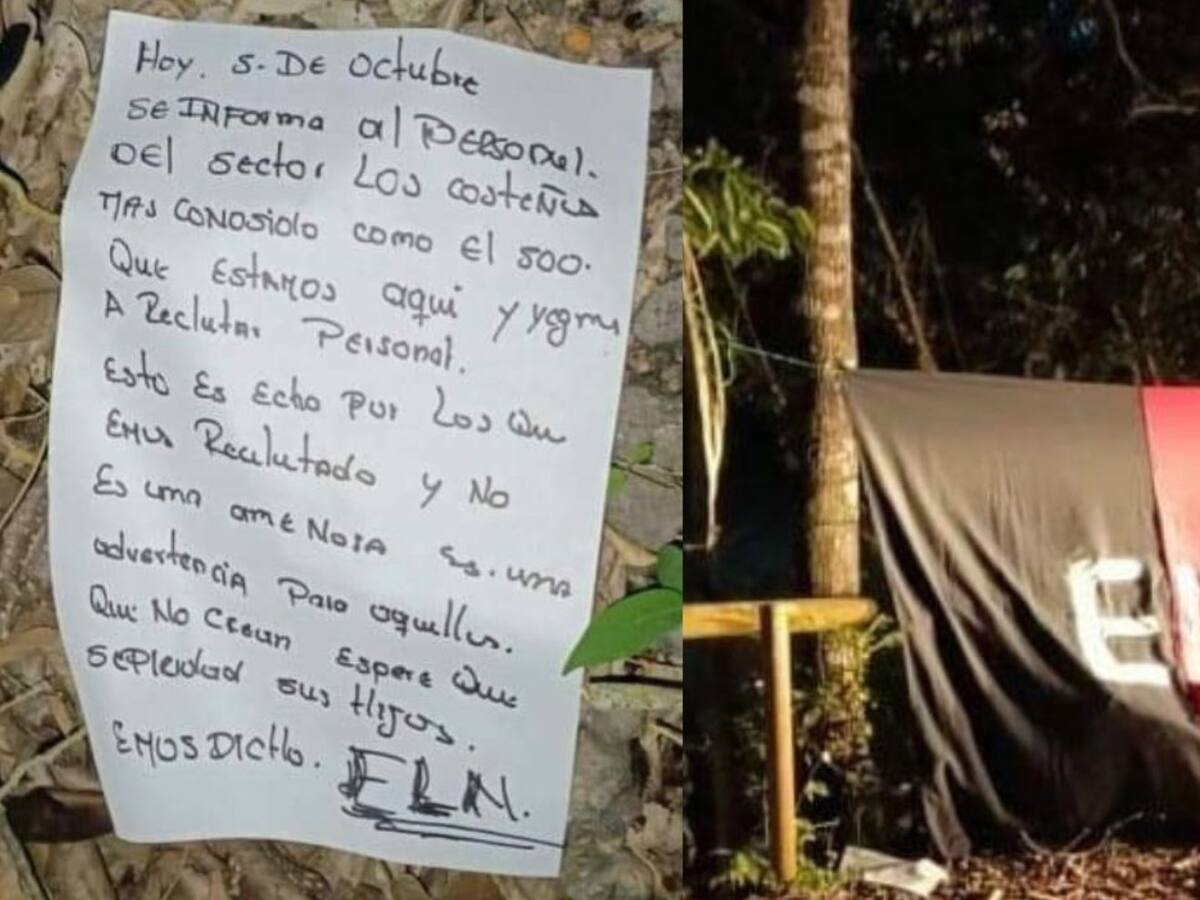 Hoy. 5. DE Octubre
SE INFORMA al PERSONAL.
DEL SECTOR LOS COSTEÑOS
MAS CONOSIDO COMO El 500.
QUE ESTAMOS aqui y
A Reclutar Personal.
Esto Es Echo Por Los Qu
EMUS Reclutado y No
Es una amENOSA Es. una
advertencia Para aquellos.
Que No Crean ESPERE Que
SEPIERDAD sus Hijos.
EMOS DICHO. ELN.
E